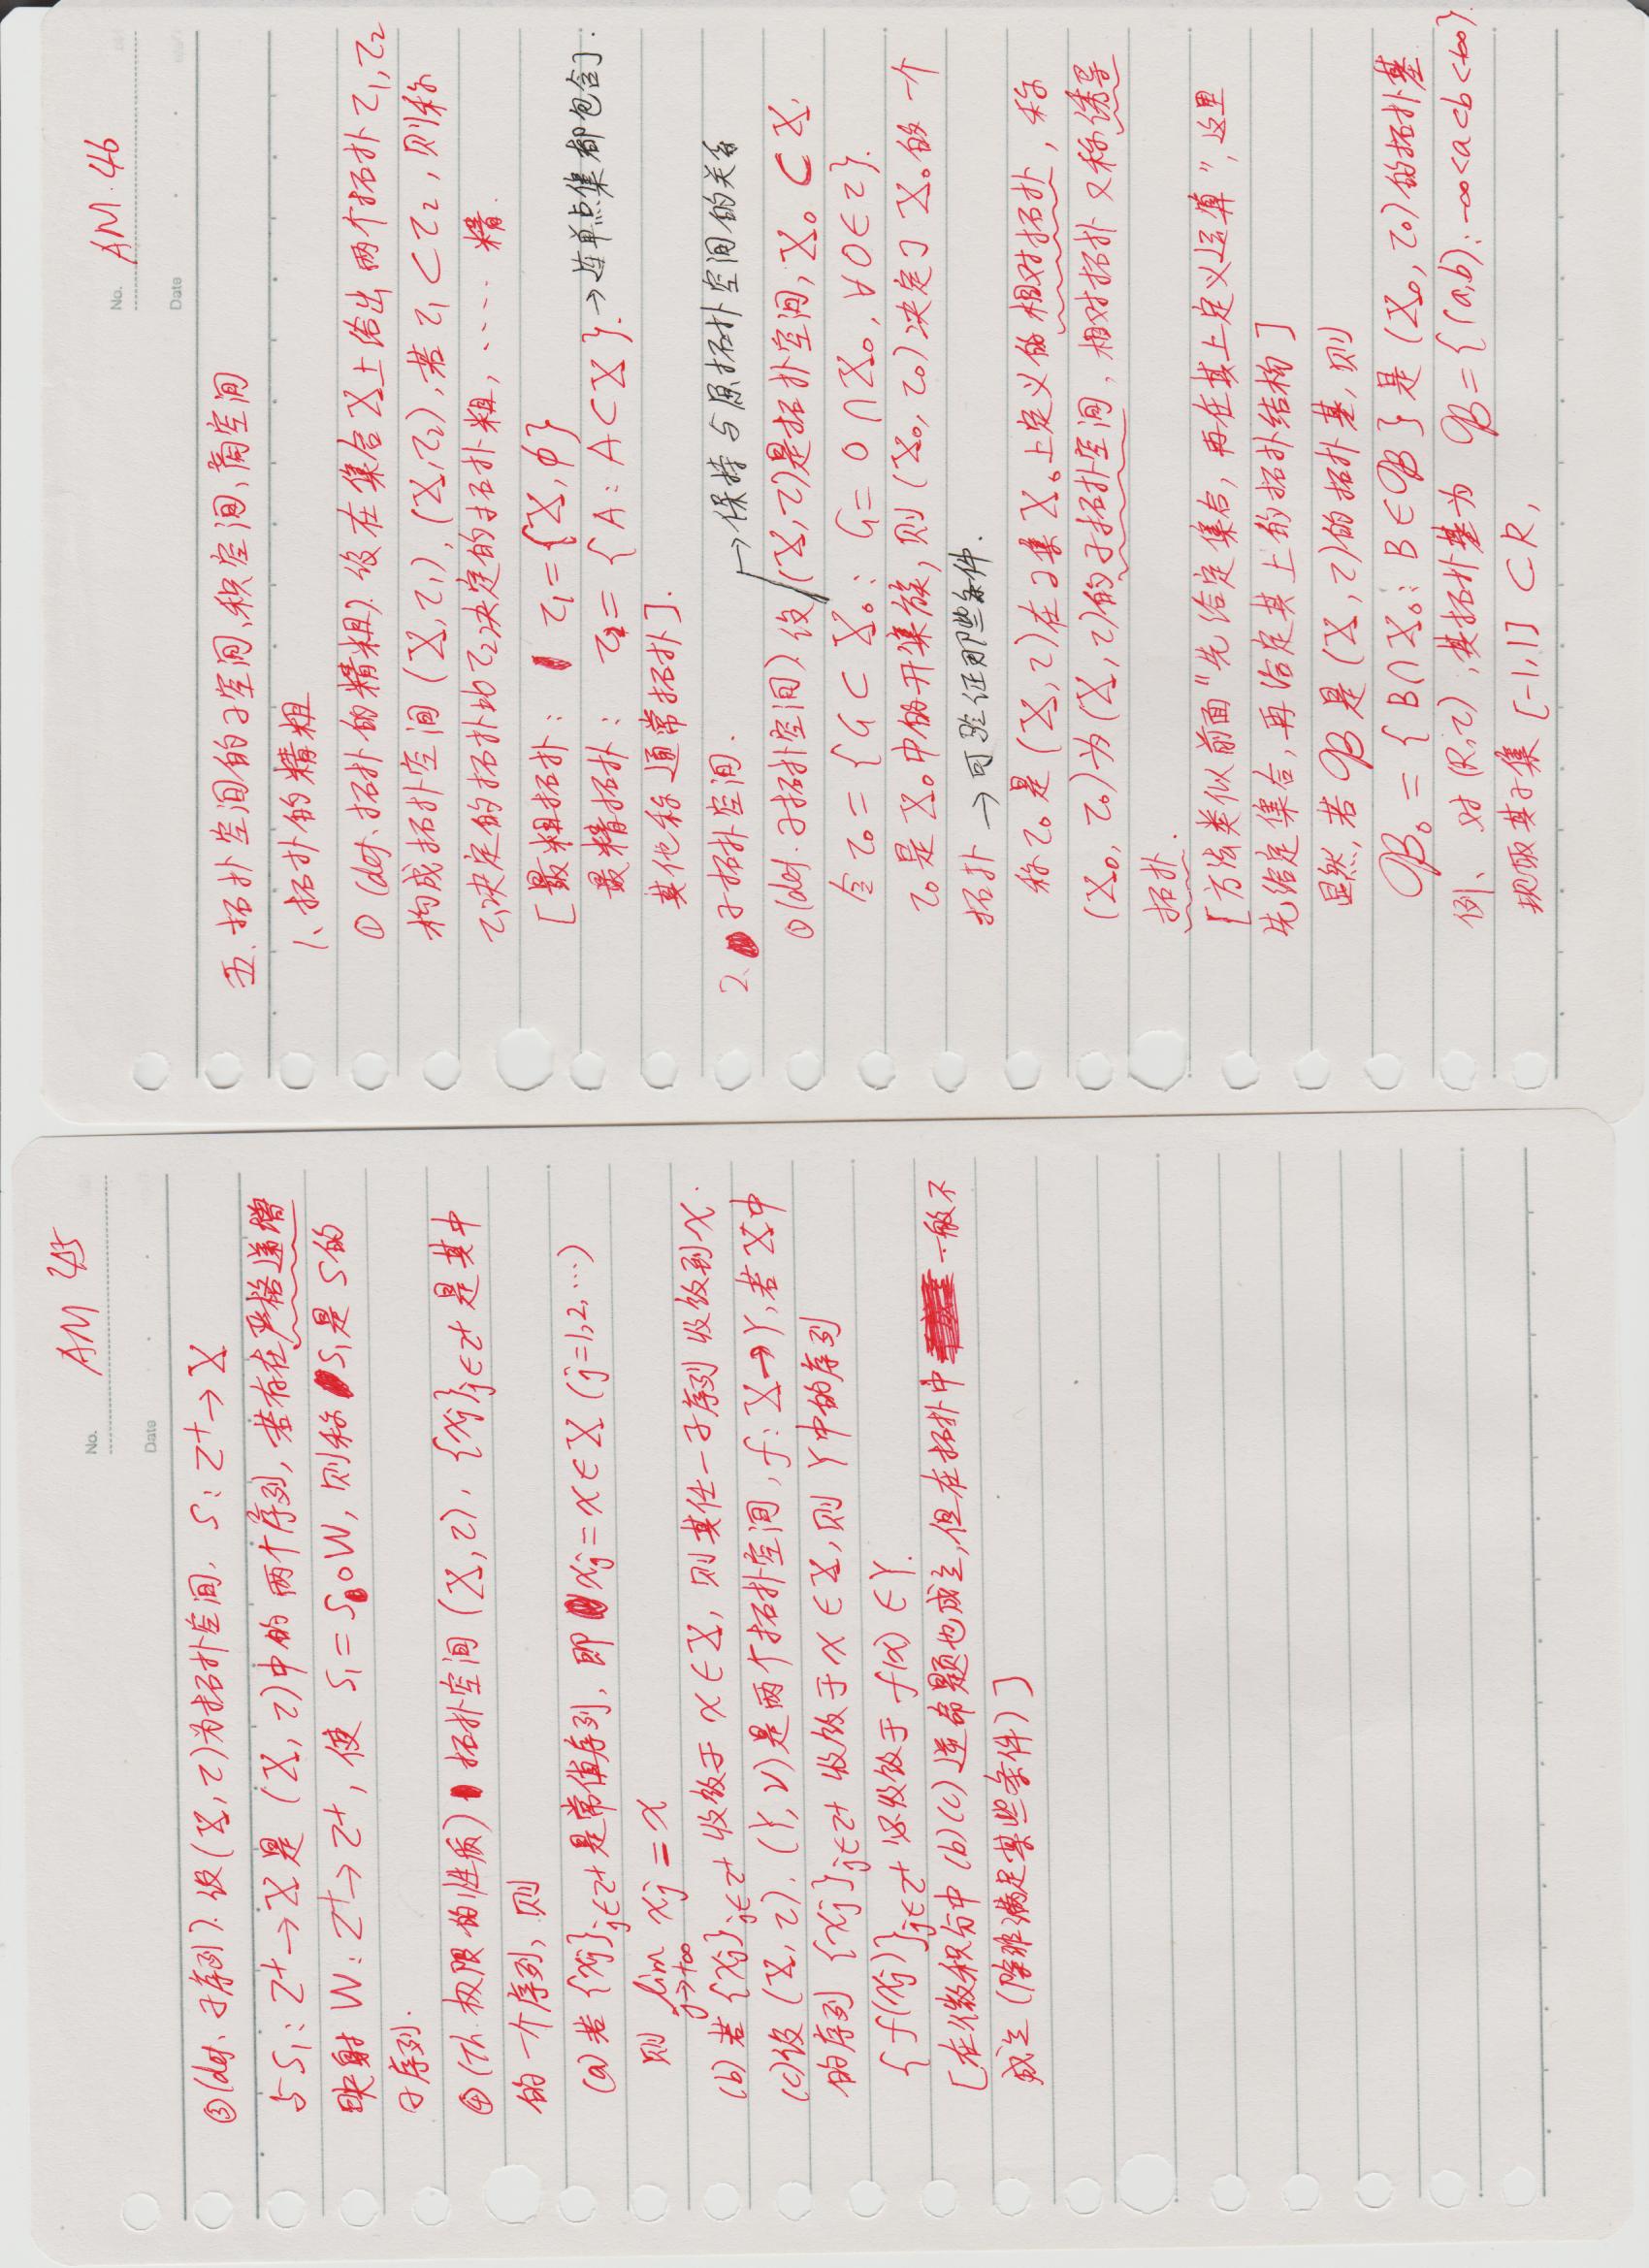 No. AM 45
Date
③(def. 子序列). 设(X,τ)为拓扑空间. S: Z⁺→X
与S₁: Z⁺→X是(X,τ)中的两个序列,若存在严格递增
映射 W: Z⁺→Z⁺, 使 S₁=S∘W, 则称S₁是S的
子序列.
④(Th.极限的性质) 拓扑空间(X,τ), {xj}j∈Z⁺是其中
的一个序列, 则
(a)若{xj}j∈Z⁺是常值序列, 即 xj=x∈X (j=1,2,…)
则 lim xj = x
j→+∞
(b)若{xj}j∈Z⁺收敛于x∈X, 则其任一子序列收敛到x.
(c)设(X,τ), (Y,ν)是两个拓扑空间, f: X→Y, 若X中
的序列{xj}j∈Z⁺收敛于x∈X, 则Y中的序列
{f(xj)}j∈Z⁺必收敛于f(x)∈Y.
[在微积分中(b)(c)逆命题也成立,但在拓扑中一般不
成立(除非满足某些条件)]
No. AM.46
Date
五.拓扑空间的子空间、积空间、商空间
1、拓扑的精粗
①(def.拓扑的精粗).设在集合X上给出两个拓扑τ₁,τ₂
构成拓扑空间(X,τ₁),(X,τ₂),若τ₁⊂τ₂,则称
τ₁决定的拓扑比τ₂决定的拓扑粗, …… 精.
[最粗拓扑: τ₁={X,φ}
最精拓扑: τ₂={A: A⊂X}. →连单点集都包含].
其他称通常拓扑].
2、子拓扑空间.
→保持与原拓扑空间的关系
①(def.子拓扑空间).设(X,τ)是拓扑空间, X₀⊂X.
令τ₀={G⊂X₀: G=O∩X₀, ∀O∈τ}.
τ₀是X₀中的开集族, 则(X₀,τ₀)决定了X₀的一个
拓扑 →可验证那些条件.
称τ₀是(X,τ)在子集X₀上定义的相对拓扑, 称
(X₀,τ₀)为(X,τ)的子拓扑空间, 相对拓扑又称诱导
拓扑.
[方法类似前面"先给定集合,再在其上定义运算",这里
先给定集合,再给定其上的拓扑结构]
显然,若ℬ是(X,τ)的拓扑基,则
ℬ₀={B∩X₀: B∈ℬ}是(X₀,τ₀)的拓扑基
例、对(R,τ),其拓扑基为 ℬ={(a,b): -∞<a<b<+∞}.
现取其子集[-1,1]⊂R,